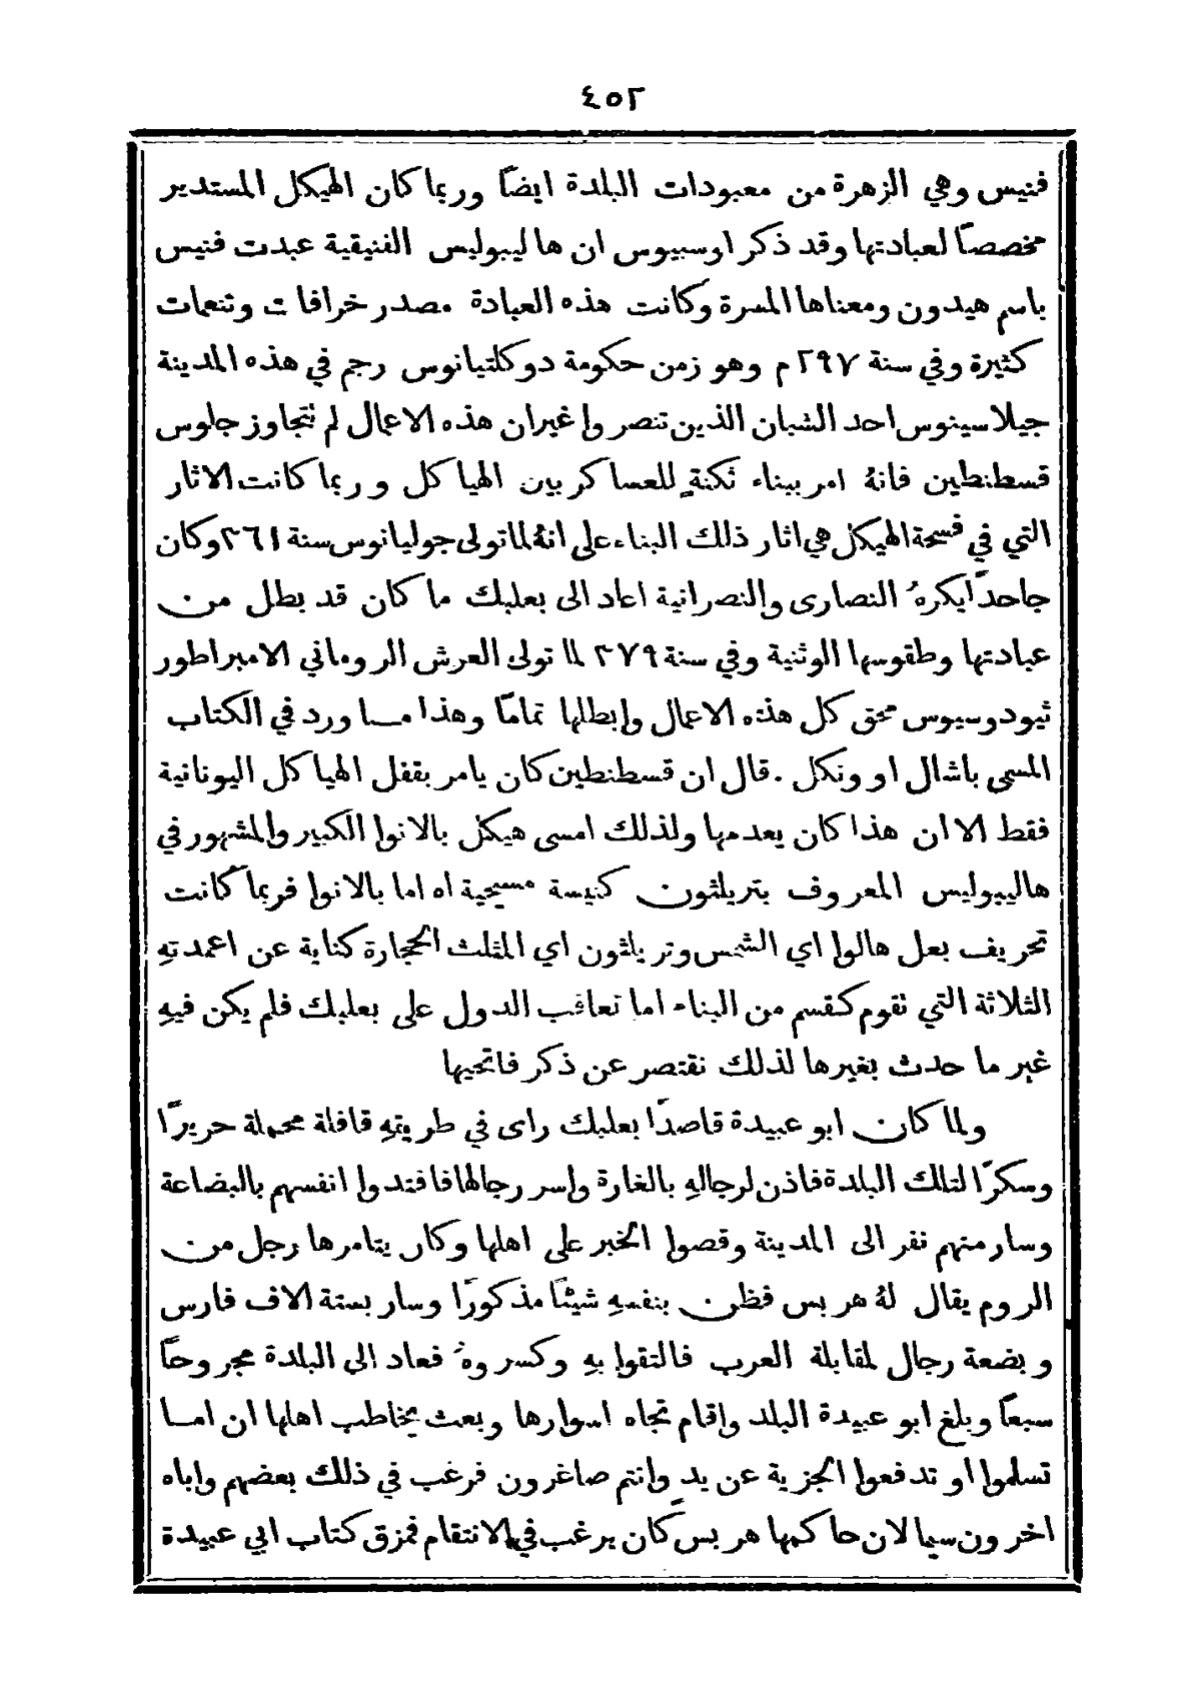 ٤٥٢
فنيس وهي الزهرة من معبودات البلدة ايضاً وربما كان الهيكل المستدير
مخصصاً لعبادتها وقد ذكر اوسبيوس ان هاليبوليس الفنيقية عبدت فنيس
باسم هيدون ومعناها المسرة وكانت هذه العبادة مصدر خرافات وتنعمات
كثيرة وفي سنة ٢٩٧ م وهو زمن حكومة دوكلتيانوس رجم في هذه المدينة
جيلاسينوس احد الشبان الذين تنصروا غيران هذه الاعمال لم تتجاوز جلوس
قسطنطين فانهُ امر ببناء ثكنةٍ للعساكر بين الهياكل وربما كانت الاثار
التي في فسحة الهيكل هي اثار ذلك البناء على انهُ لما تولى جوليانوس سنة ٣٦١ وكان
جاحداً يكرهُ النصارى والنصرانية اعاد الى بعلبك ما كان قد بطل من
عبادتها وطقوسها الوثنية وفي سنة ٣٧٩ لما تولى العرش الروماني الامبراطور
ثيودوسيوس محق كل هذه الاعمال وابطلها تماماً وهذا ما ورد في الكتاب
المسمى باشال اوونكل . قال ان قسطنطين كان يامر بقفل الهياكل اليونانية
فقط الا ان هذا كان يعدمها ولذلك امسى هيكل بالانوا الكبير والمشهور في
هاليبوليس المعروف بتريلثون كنيسة مسيحية اه اما بالانوا فربما كانت
تحريف بعل هالوا اي الشمس وتريلثون اي المثلث الحجارة كناية عن اعمدتهِ
الثلاثة التي تقوم كقسم من البناء اما تعاقب الدول على بعلبك فلم يكن فيهِ
غير ما حدث بغيرها لذلك نقتصر عن ذكر فاتحيها
ولما كان ابو عبيدة قاصداً بعلبك راى في طريقهِ قافلة محملة حريراً
وسكراً لتلك البلدة فاذن لرجالهِ بالغارة واسر رجالها فافتدوا انفسهم بالبضاعة
وسار منهم نفر الى المدينة وقصوا الخبر على اهلها وكان يتامرها رجل من
الروم يقال لهُ هربس فظن بنفسهِ شيئاً مذكوراً وسار بستة الاف فارس
وبضعة رجال لمقابلة العرب فالتقوا بهِ وكسروهُ فعاد الى البلدة مجروحاً
سبعاً وبلغ ابو عبيدة البلد واقام تجاه اسوارها وبعث يخاطب اهلها ان اما
تسلموا او تدفعوا الجزية عن يد وانتم صاغرون فرغب في ذلك بعضهم واباه
اخرون سيما لان حاكمها هربس كان يرغب في الانتقام فمزق كتاب ابي عبيدة